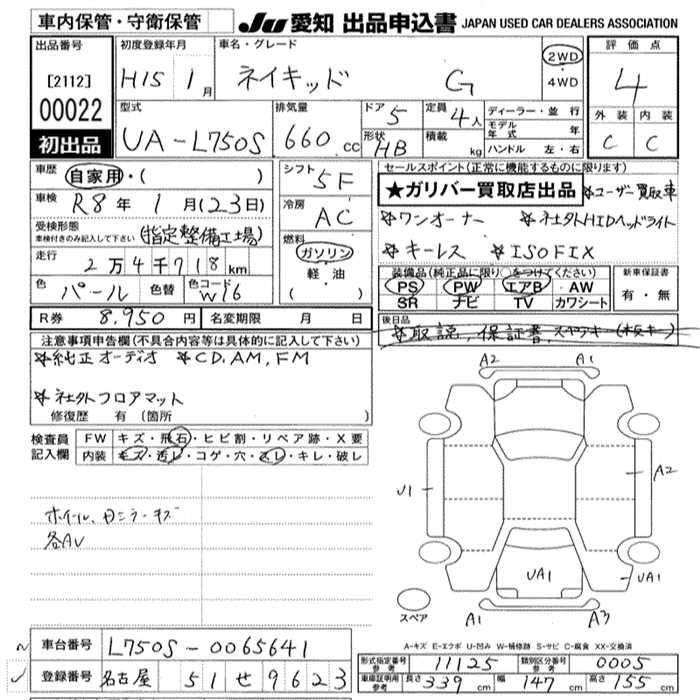 車内保管・守衛保管 JU 愛知 出品申込書 JAPAN USED CAR DEALERS ASSOCIATION
出品番号 初度登録年月 車名・グレード 評価点
[2112] H15 1月 ネイキッド G 2WD 4WD 4
00022 型式 排気量 ドア 5 定員 4人 ディーラー・並行 外装 内装
初出品 UA-L750S 660 cc 形状 HB 積載 kg モデル年式 年 ハンドル 左・右 C C
車歴 自家用・( ) シフト 5F セールスポイント(正常に機能するものに限ります)
車検 R8年 1月(23日) 冷房 AC ★ガリバー買取店出品 ☆ユーザー買取車
受検形態 車検付きのみ記入して下さい (指定整備工場) 燃料 ☆ワンオーナー ☆社外HIDヘッドライト
走行 2万4千718km ガソリン 軽油 ( ) ☆キーレス ☆ISOFIX
色 パール 色替 色コード W16 装備品(純正品に限り○をつけてください) 新車保証書
PS PW エアB AW 有・無
SR ナビ TV カワシート
R券 8,950円 名変期限 月 日 後日品
☆取説, 保証書, スペアキー
注意事項申告欄(不具合内容等は具体的に記入して下さい)
☆純正オーディオ ☆CD,AM,FM
☆社外フロアマット
修復歴 有 (箇所 )
検査員記入欄 FW キズ・飛石・ヒビ割・リペア跡・X要
内装 キズ・汚レ・コゲ・穴・スレ・キレ・破レ
A2 A1
J1 A2
ホイール、
各AU
UA1 UA1
スペア A1 A3
A-キズ E-エクボ U-凹み W-補修跡 S-サビ C-腐食 XX-交換済
車台番号 L750S-0065641
登録番号 名古屋 51 せ 9623
形式指定番号 参考 11125 類別区分番号 参考 0005
車庫証明用 参考 長さ 339cm 幅 147cm 高さ 155cm